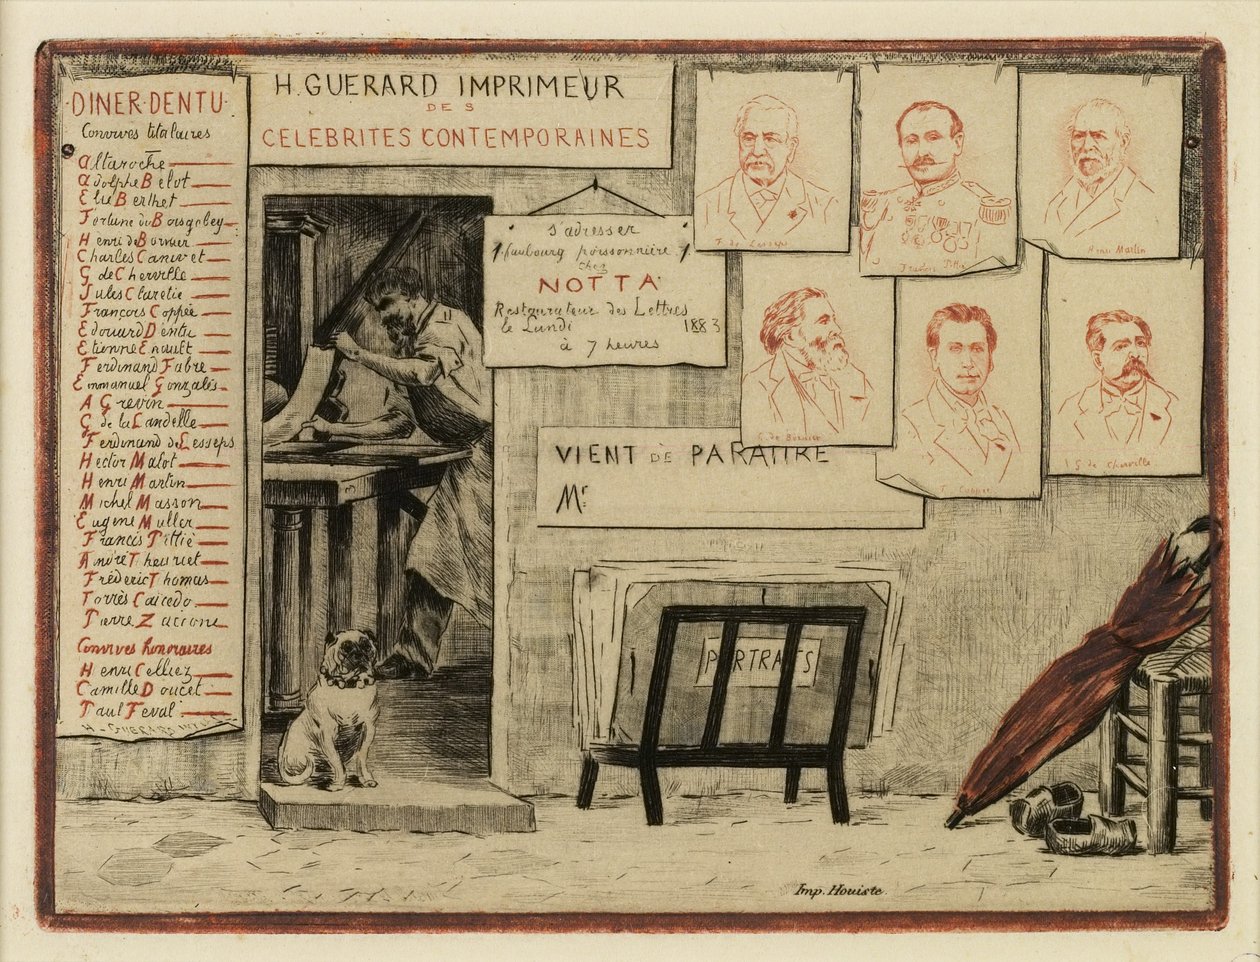 DINER·DENTU·
Convives titulaires
Altaroche
Adolphe Belot
Elie Berthet
Fortuné du Boisgobey
Henri de Bornier
Charles Canivet
G de Cherville
Jules Claretie
François Coppée
Edouard Dentu
Etienne Enault
Ferdinand Fabre
Emmanuel Gonzalès
A Grevin
G de la Landelle
Ferdinand de Lesseps
Hector Malot
Henri Martin
Michel Masson
Eugène Muller
Francis Pittié
André Theuriet
Fréderic Thomas
Torrès Caïcedo
Pierre Zaccone
Convives honoraires
Henri Celliez
Camille Doucet
Paul Feval
H. Guerard
H. GUERARD IMPRIMEUR
DES
CELEBRITES CONTEMPORAINES
S'adresser
1 faubourg poissonnière 1
chez
NOTTA
Restaurateur des Lettres
le Lundi 1883
à 7 heures
F. de Lesseps
Henri Martin
G. de Cherville
VIENT DE PARAITRE
Mr
PORTRAITS
Imp. Houiste.